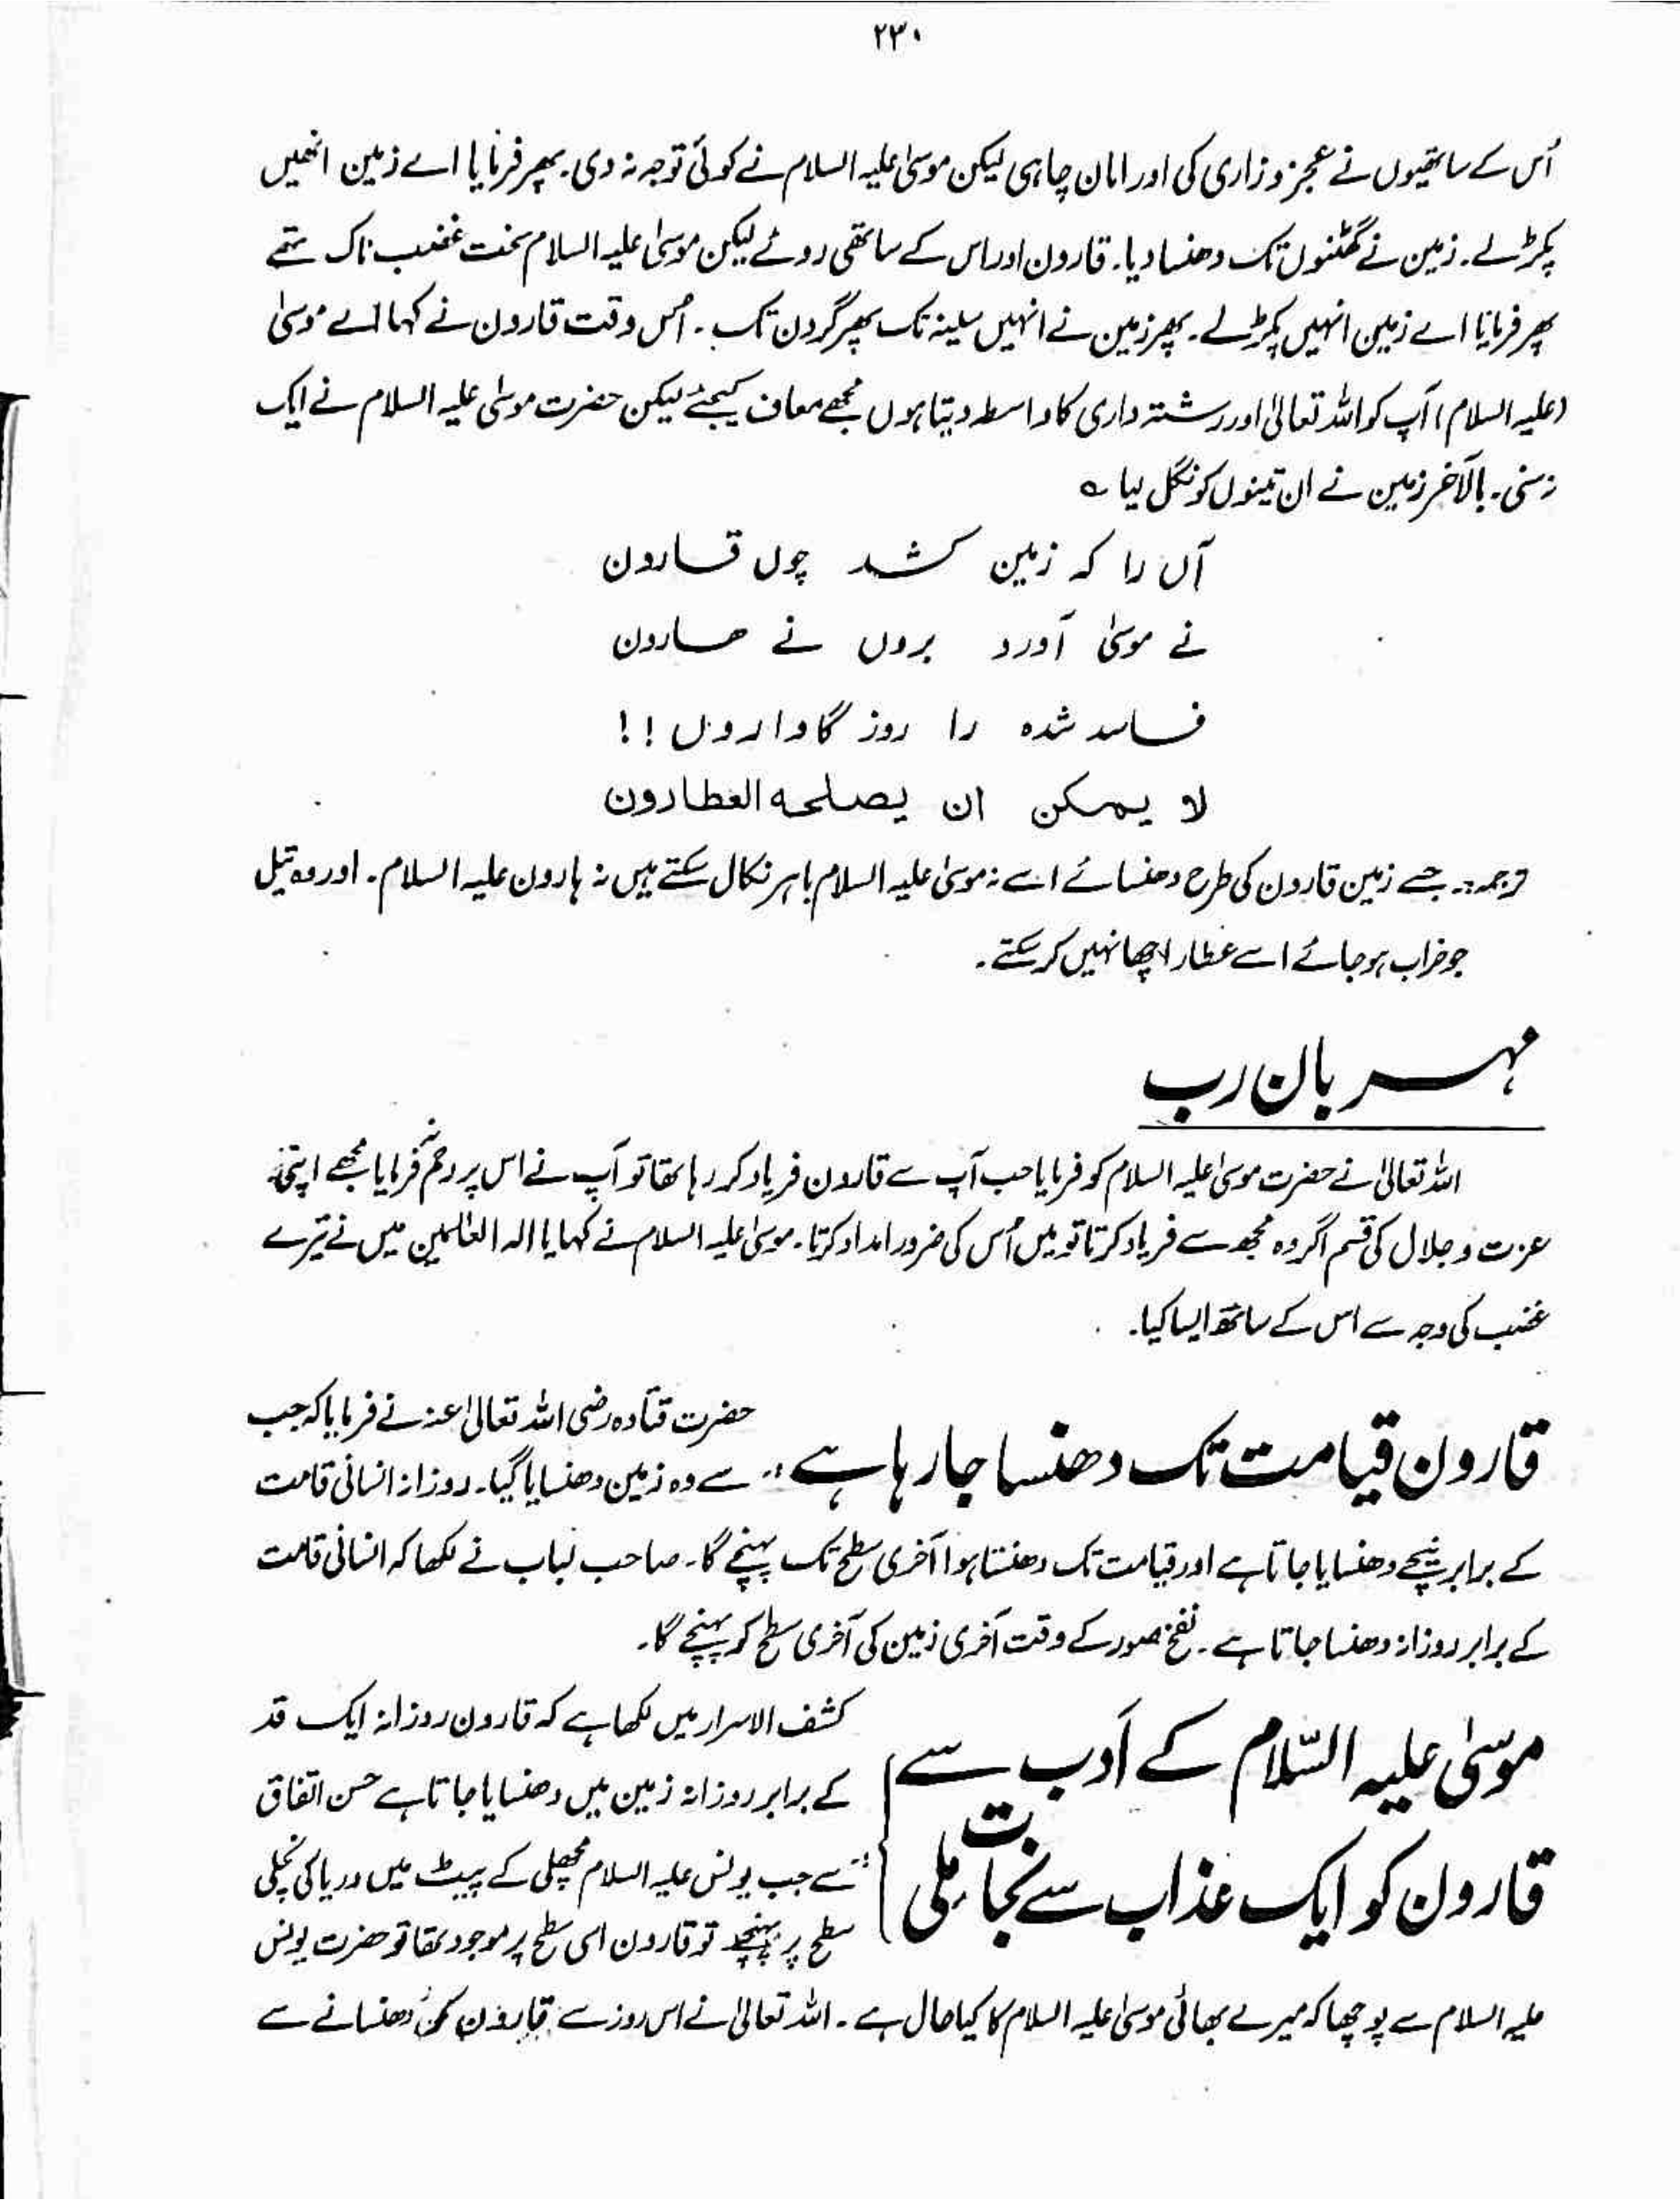 ۲۳۰
اُس کے ساتھیوں نے عجز و زاری کی اور امان چاہی لیکن موسیٰ علیہ السلام نے کوئی توجہ نہ دی۔ پھر فرمایا اے زمین انھیں
پکڑ لے۔ زمین نے گھٹنوں تک دھنسا دیا۔ قارون اور اس کے ساتھی روئے لیکن موسیٰ علیہ السلام سخت غضب ناک تھے
پھر فرمایا اے زمین انہیں پکڑ لے۔ پھر زمین نے انہیں سینہ تک پھر گردن تک۔ اُس وقت قارون نے کہا اے موسیٰ
(علیہ السلام) آپ کو اللہ تعالیٰ اور رشتہ داری کا واسطہ دیتا ہوں مجھے معاف کیجئے لیکن حضرت موسیٰ علیہ السلام نے ایک
نہ سنی۔ بالآخر زمین نے ان تینوں کو نگل لیا ؎
آں را کہ زمین کشد چوں قارون
نے موسیٰ آورد بروں نے ھارون
فاسد شدہ را روز گاوارون !!
لا یمکن ان یصلحہ العطارون
ترجمہ:۔ جسے زمین قارون کی طرح دھنسائے اسے نہ موسیٰ علیہ السلام باہر نکال سکتے ہیں نہ ہارون علیہ السلام۔ اور وہ تیل
جو خراب ہو جائے اسے عطار اچھا نہیں کر سکتے۔
مہربان رب
اللہ تعالیٰ نے حضرت موسیٰ علیہ السلام کو فرمایا جب آپ سے قارون فریاد کر رہا تھا تو آپ نے اس پر رحم نہ فرمایا مجھے اپنی
عزت و جلال کی قسم اگر وہ مجھ سے فریاد کرتا تو میں اُس کی ضرور امداد کرتا۔ موسیٰ علیہ السلام نے کہا یا الہ العٰلمین میں نے تیرے
غضب کی وجہ سے اس کے ساتھ ایسا کیا۔
قارون قیامت تک دھنسا جا رہا ہے
حضرت قتادہ رضی اللہ تعالیٰ عنہ نے فرمایا کہ جب
سے وہ زمین دھنسایا گیا۔ روزانہ انسانی قامت
کے برابر نیچے دھنسایا جاتا ہے اور قیامت تک دھنستا ہوا آخری سطح تک پہنچے گا۔ صاحب لباب نے لکھا کہ انسانی قامت
کے برابر روزانہ دھنسا جاتا ہے۔ نفخ صور کے وقت آخری زمین کی آخری سطح کو پہنچے گا۔
موسیٰ علیہ السّلام کے اَدب سے
قارون کو ایک عذاب سے نجات ملی
کشف الاسرار میں لکھا ہے کہ قارون روزانہ ایک قد
کے برابر روزانہ زمین میں دھنسایا جاتا ہے حسن اتفاق
سے جب یونس علیہ السلام مچھلی کے پیٹ میں دریا کی نچلی
سطح پر پہنچے تو قارون اسی سطح پر موجود تھا تو حضرت یونس
علیہ السلام سے پوچھا کہ میرے بھائی موسیٰ علیہ السلام کا کیا حال ہے۔ اللہ تعالیٰ نے اس روز سے قارون کو دھنسانے سے